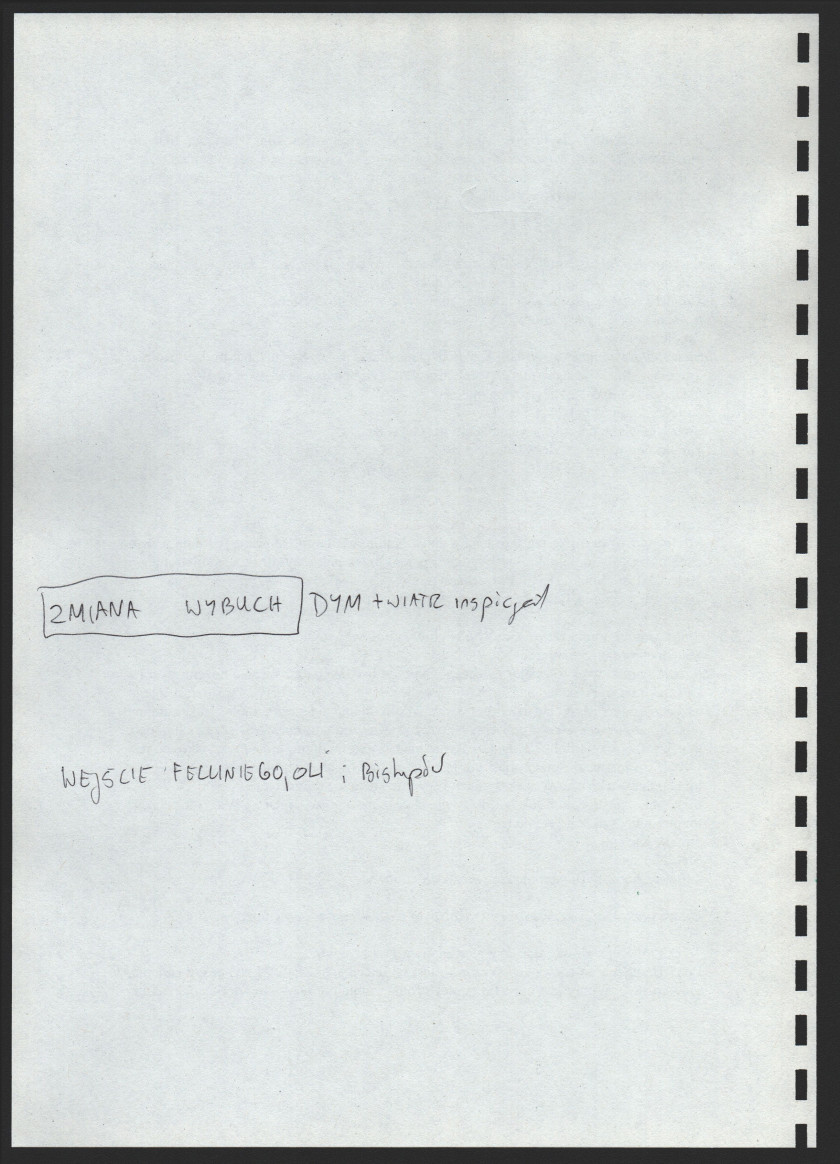 ZMIANA WYBUCH DYM + WIATR inspicjent
WEJŚCIE FELLINIEGO, OLI i Biskupów